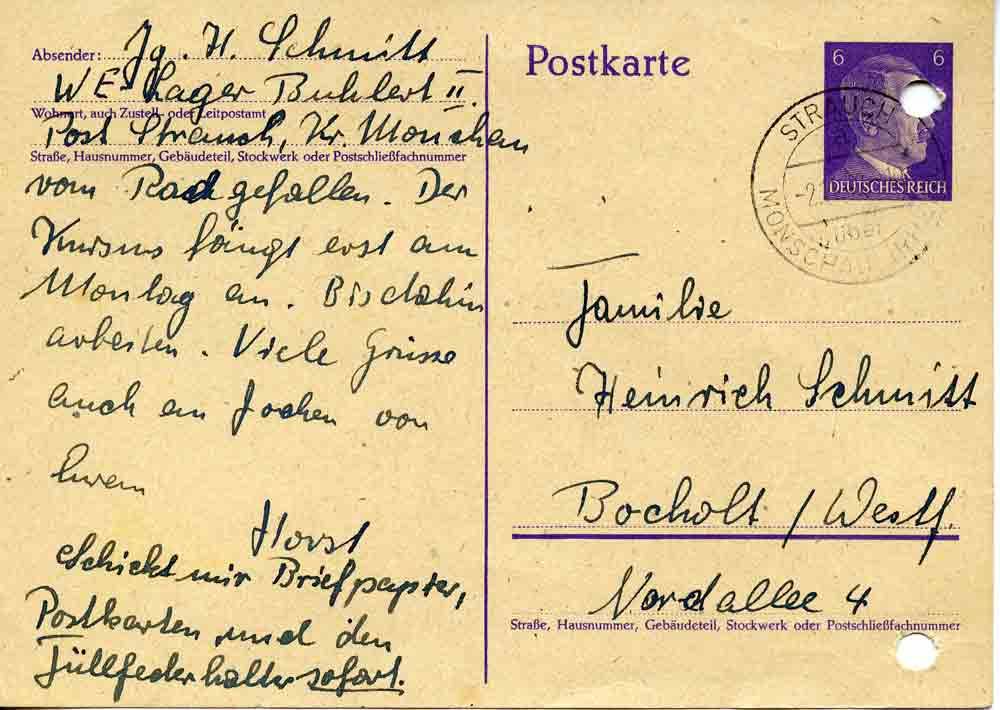 Absender: Jg. H. Schmitt
WE Lager Buhlert II.
Wohnort, auch Zustell- oder Leitpostamt
Post Strauch, Kr. Monschau
Straße, Hausnummer, Gebäudeteil, Stockwerk oder Postschließfachnummer
vom Rad gefallen. Der
Kursus fängt erst am
Montag an. Bis dahin
arbeiten. Viele Grüsse
auch an Jochen von
Eurem
Horst
Schickt mir Briefpapier,
Postkarten und den
Füllfederhalter sofort.
Postkarte
6 6
DEUTSCHES REICH
STRAUCH
über
MONSCHAU
Familie
Heinrich Schmitt
Bocholt / Westf.
Nordallee 4
Straße, Hausnummer, Gebäudeteil, Stockwerk oder Postschließfachnummer